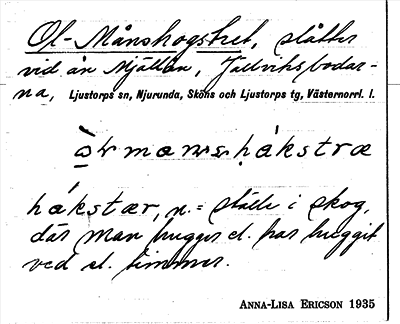 Ol-Månshogstret, slåtter
vid ån Mjällån, Jällviksbodar-
na, Ljustorps sn, Njurunda, Sköns och Ljustorps tg, Västernorrl. l.
hákstær, n.= ställe i skog,
där man hugger el. har huggit
ved el. timmer.
ANNA-LISA ERICSON 1935